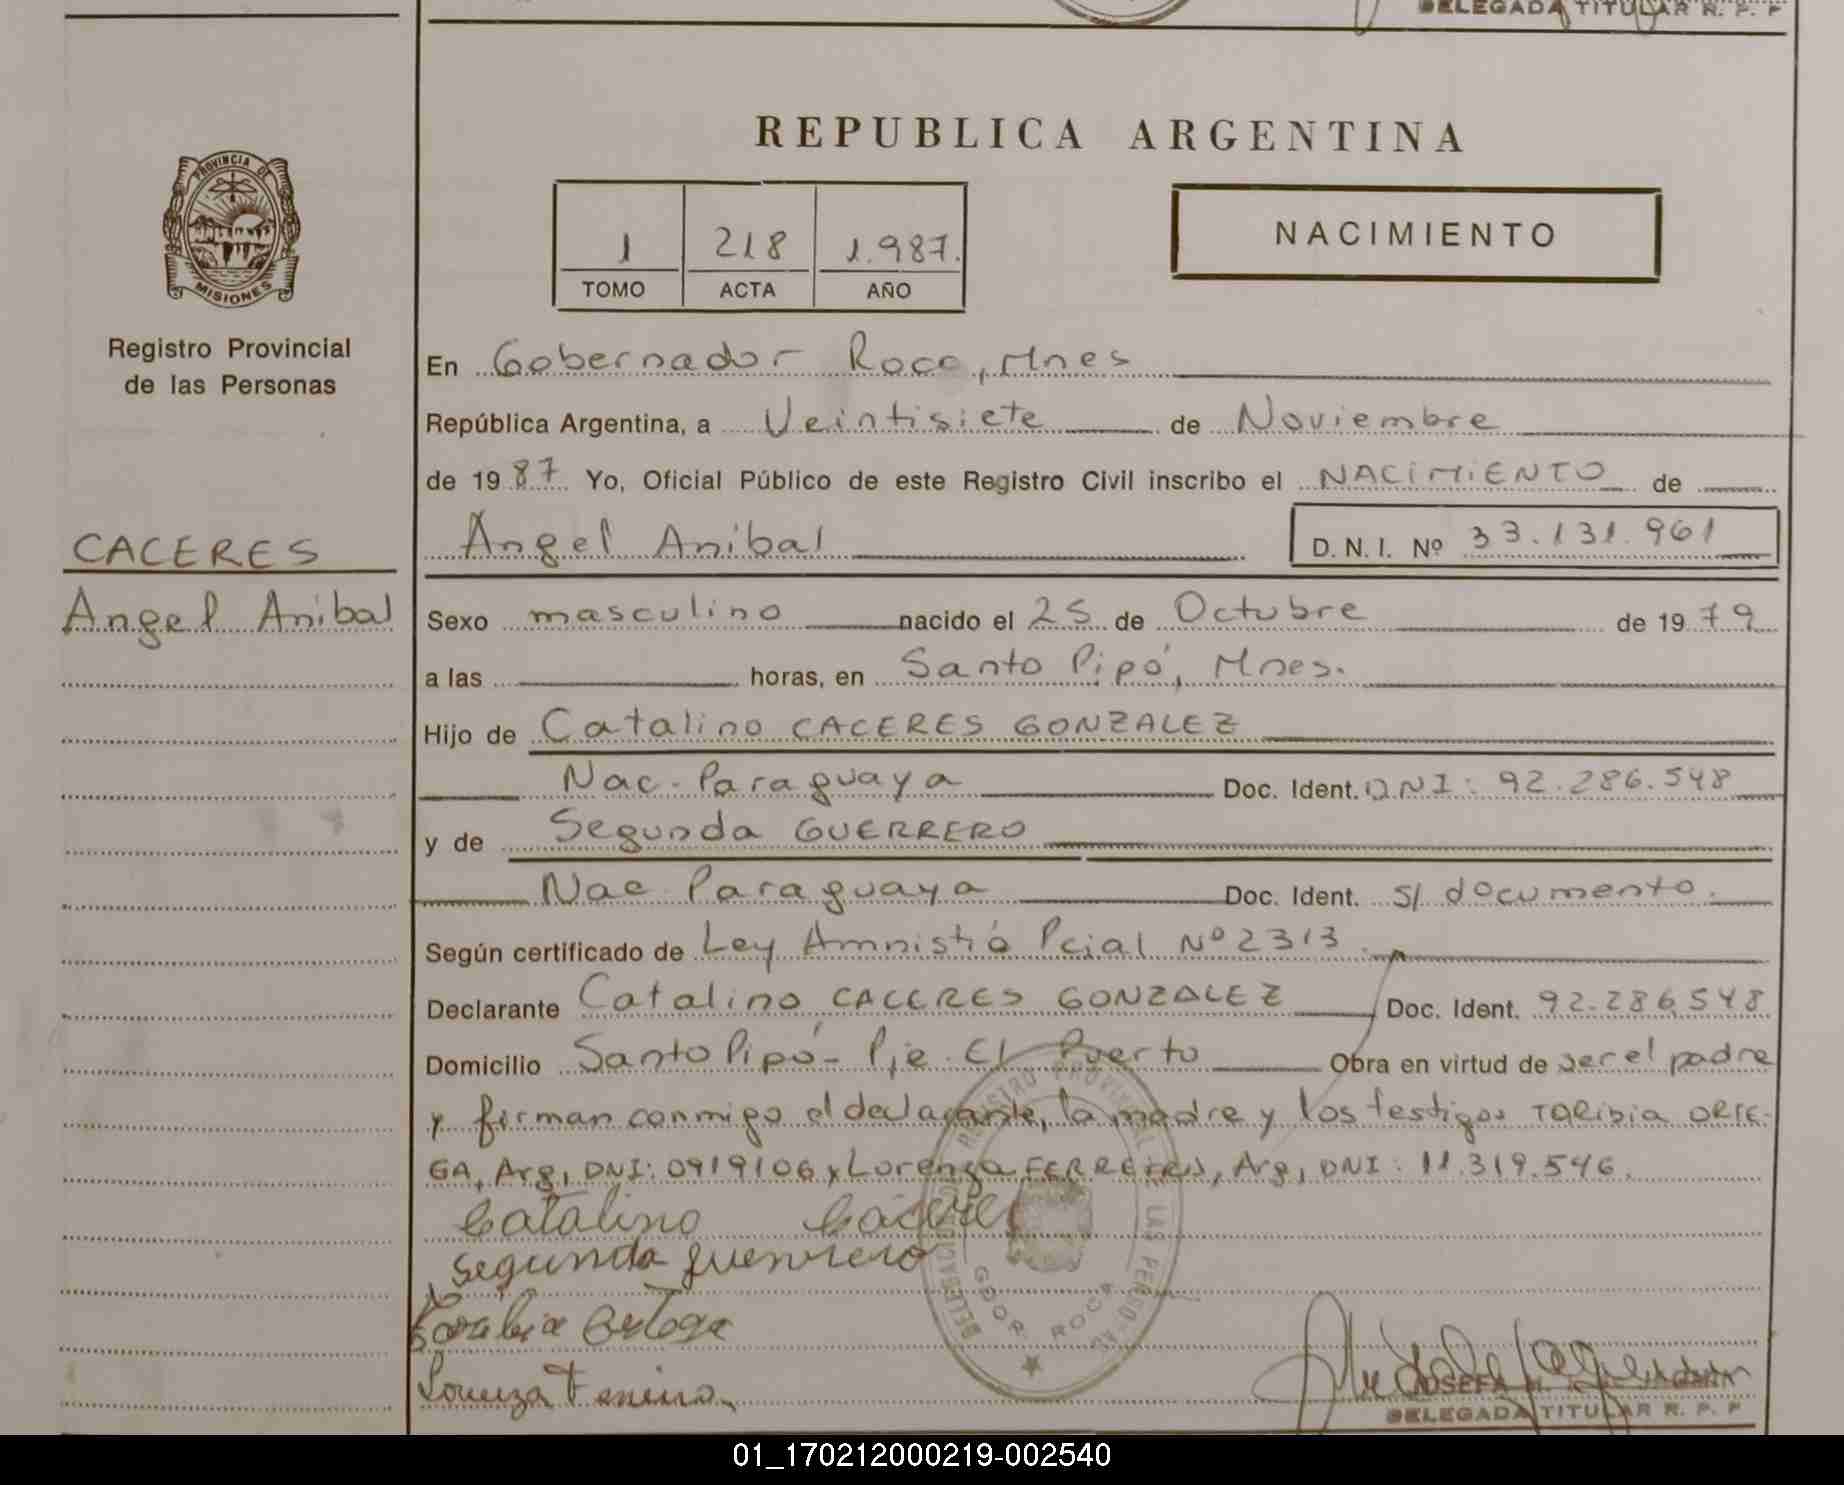 DELEGADA TITULAR R. P. P
REPUBLICA ARGENTINA
PROVINCIA DE
MISIONES
Registro Provincial
de las Personas
CACERES
Angel Anibal
1 218 1.987.
TOMO ACTA AÑO
NACIMIENTO
En Gobernador Roca, Mnes
República Argentina, a Veintisiete de Noviembre
de 19 87 Yo, Oficial Público de este Registro Civil inscribo el NACIMIENTO de
Angel Anibal D. N. I. Nº 33.131.961
Sexo masculino nacido el 25 de Octubre de 19 79
a las horas, en Santo Pipó, Mnes.
Hijo de Catalino CACERES GONZALEZ
Nac. Paraguaya Doc. Ident. D.N.I: 92.286.548
y de Segunda GUERRERO
Nac Paraguaya Doc. Ident. S/ documento.
Según certificado de Ley Amnistía Pcial Nº 2313.
Declarante Catalino CACERES GONZALEZ Doc. Ident. 92.286.548
Domicilio Santo Pipó - Pje. El Puerto Obra en virtud de ser el padre
y firman conmigo el declarante, la madre y los testigos TORIBIA ORTE-
GA, Arg, DNI: 0919106 y Lorenza, Arg, DNI: 11.319.546.
Catalino Caceres
Segunda guerrero
Toribia Ortega
Lorenza
REGISTRO PROVINCIAL DE LAS PERSONAS
DELEGACION
GDOR. ROCA
JOSEFA
DELEGADA TITULAR R. P. P
01_170212000219-002540